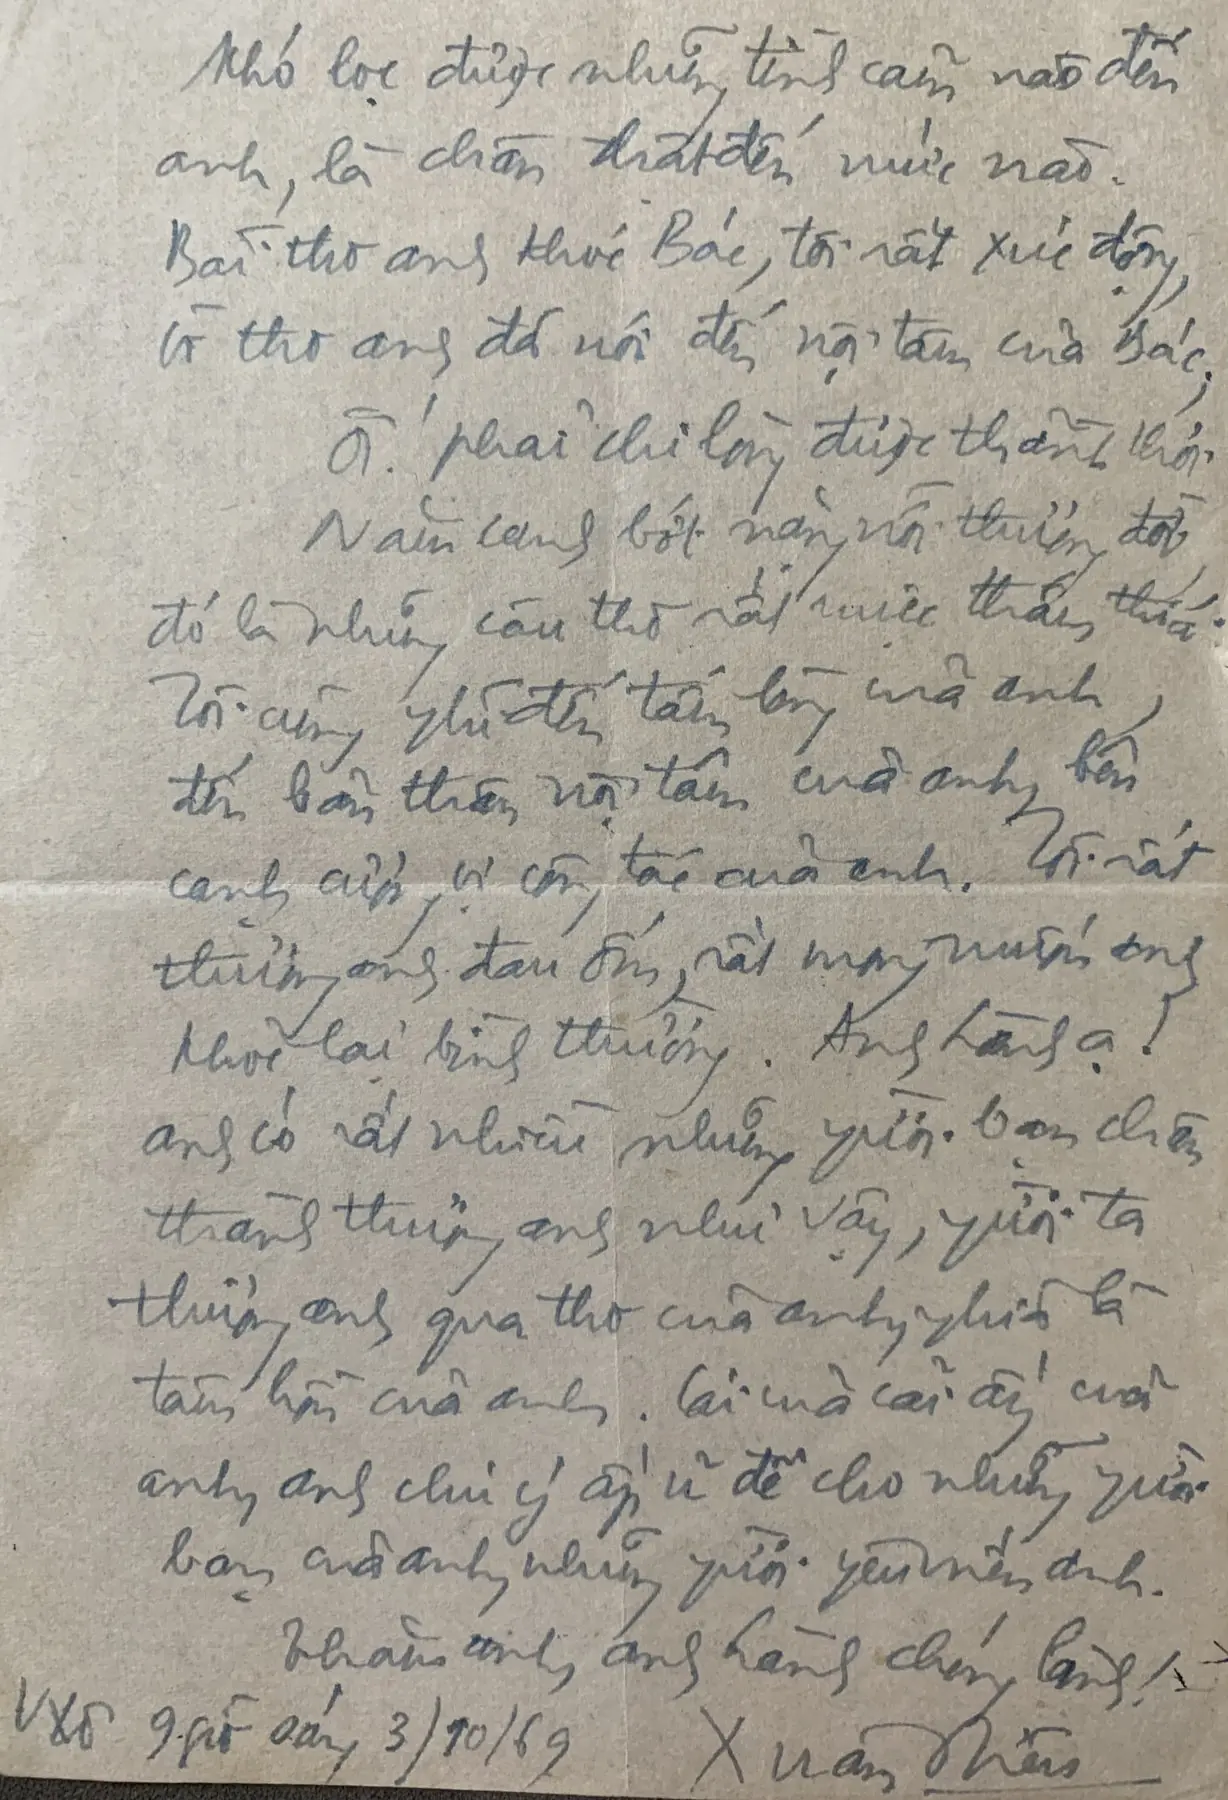 khó lọc được những tình cảm nào đến
anh, là chân thật đến mức nào.
Bài thơ anh khóc Bác, tôi rất xúc động,
vì thơ anh đã nói đến nội tâm của Bác,
Ôi! phải chi lòng được thảnh thơi
Năm canh bớt nặng nỗi thương đời
đó là những câu thơ rất mực thấm thía.
Tôi cũng nghĩ đến tấm lòng của anh,
đến bản thân nội tâm của anh, bên
cạnh cương vị công tác của anh. Tôi rất
thương anh đau ốm, rất mong muốn anh
khoẻ lại bình thường. Anh Lành ạ!
anh có rất nhiều những người bạn chân
thành thương anh như vậy, người ta
thương anh qua thơ của anh, nghĩa là
tâm hồn của anh. Cái của cải ấy của
anh, anh chú ý ấp ủ để cho những người
bạn của anh, những người yêu mến anh.
Thăm anh, anh Lành chóng lành!
VXô 9 giờ sáng 3/10/69 Xuân Diệu